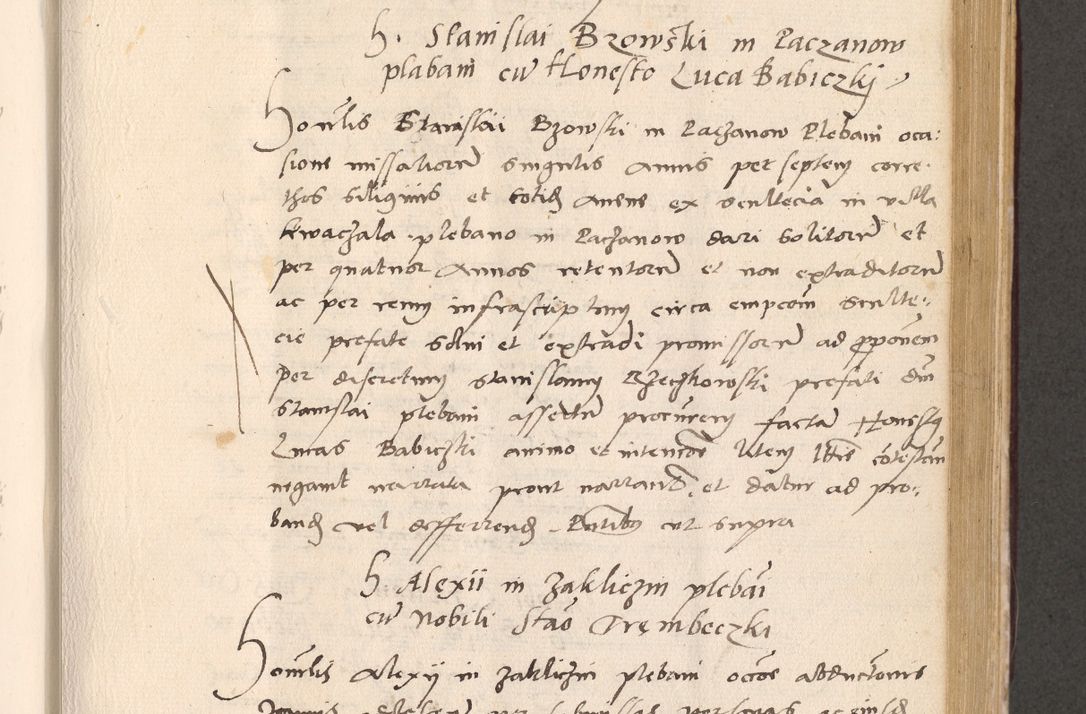 h. Stanislai Bzowski in Paczanow
plabani cu Honesto Luca Babiczkj
Honlis Stanislai Bzowski in Paczanow Plebani oca:
sione missaliorum singulis Annis per septem corre.
thos siliginis et totid Avene ex scultecia in villa
kwaczala plebano in Paczanow dari solitorum et
per quatuor Annos retentorum et non extraditorum
ac per reum infrascriptum circa empcom sculte:
cie prefate solui et extradi promissorum ad propponem
per discretum Stanislaum Rzeczkowski prefati dni
Stanislai plebani assertum procurem factam Honestus
Lucas Babiczki animo et intencoe litem ltis cotestan
negauit narrata prout narrantr. et datur ad pro:
band vel defferrend. Pntibus ut supra
h. Alexii in Zakliczin plebani
cu Nobili Stao Trembeczki
Honlis Alexij in Zakliczin plebani occoe abductionis